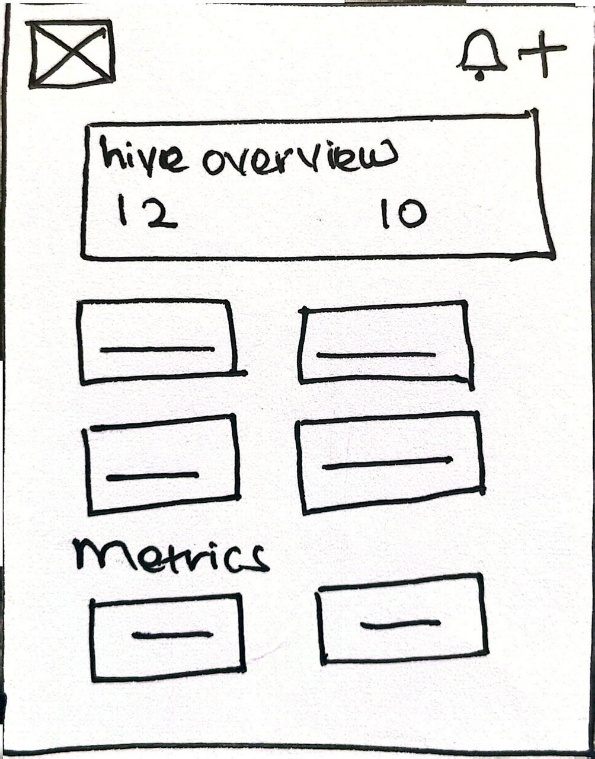 hive overview
12 10
Metrics